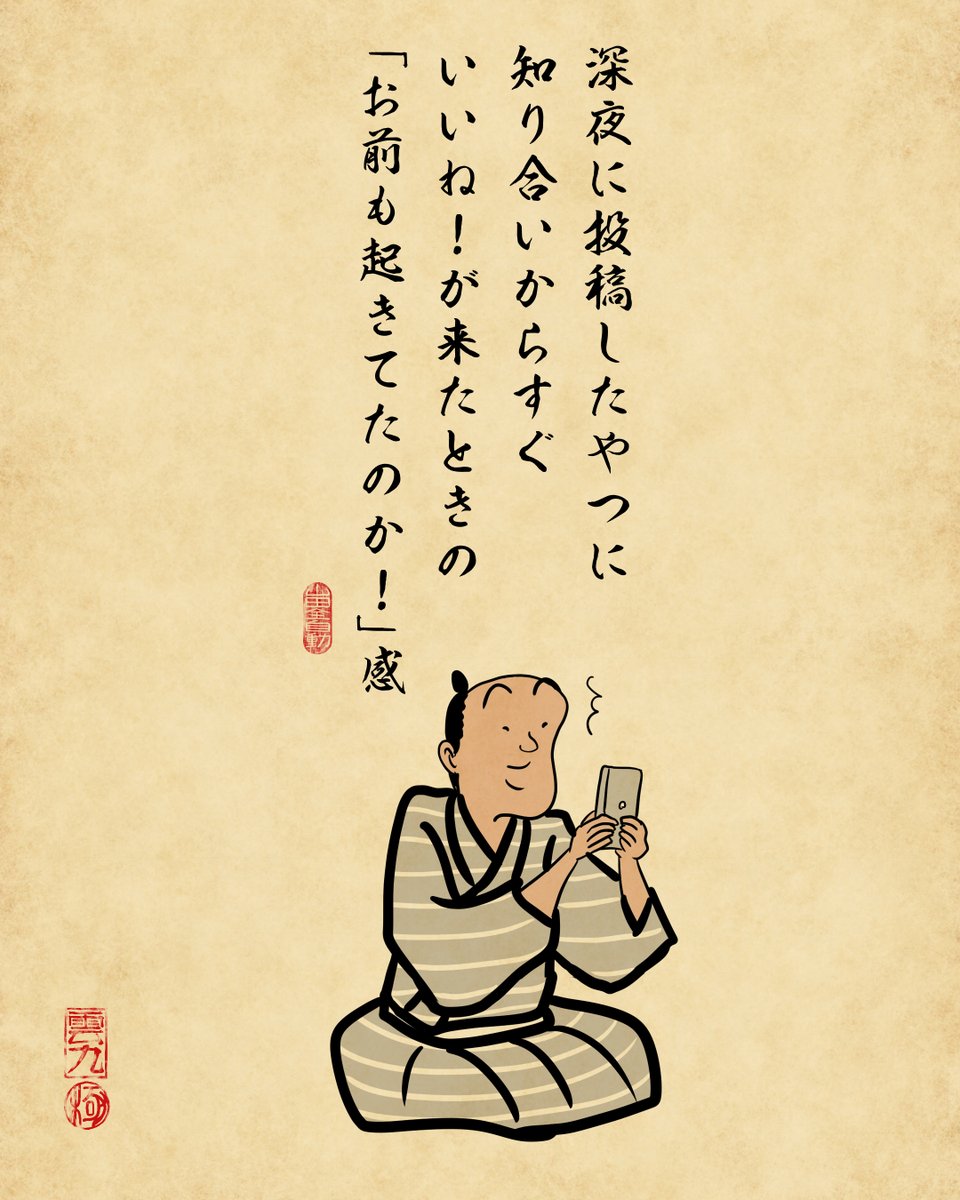 深夜に投稿したやつに
知り合いからすぐ
いいね！が来たときの
「お前も起きてたのか！」感